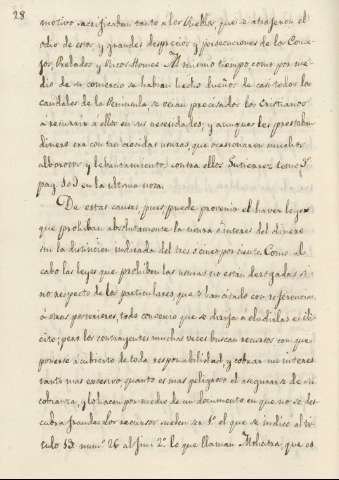 28
motivo sacrificaban tanto a los Pueblos, que se atrajeron el
odio de estos y grandes desprecios y persecuciones de los Conce-
jos, Prelados y Ricos Homes. Al mismo tiempo, como por me-
dio de su comercio se habian hecho dueños de casi todos los
caudales de la Peninsula, se veian precisados los Cristianos
á recurrir a ellos en sus necesidades; y aunque les prestaban
dinero era con tan crecidas usuras, que ocasionaron muchos
alborotos y lebantamientos contra ellos. Gutierrez tomo 5º
pag. en la ultima nota.
De estas causas pues puede provenir el haver leyes
que prohiban absolutamente la usura ó interes del dinero
sin la distincion indicada del tres ó cinco por ciento. Como al
cabo las leyes que prohiben las usuras no están derogadas si
no respecto de los particulares, que se han citado con referencia
á otras posteriores, todo convenio que se dirija á eludirlas es ili-
cito; pero los contrayentes muchas veces buscan recursos con que
ponerse á cubierto de toda responsabilidad, y cobrar un interes
tanto mas excesivo, quanto es mas peligroso el asegurarse de su
cobranza, y lo hacen por medio de un documento en que no se des-
cubra fraude. Los recursos suelen ser 1º. el que se indicó al ti-
tulo 13. num.º 26 al fin: 2.º lo que llaman Mohatra, que es